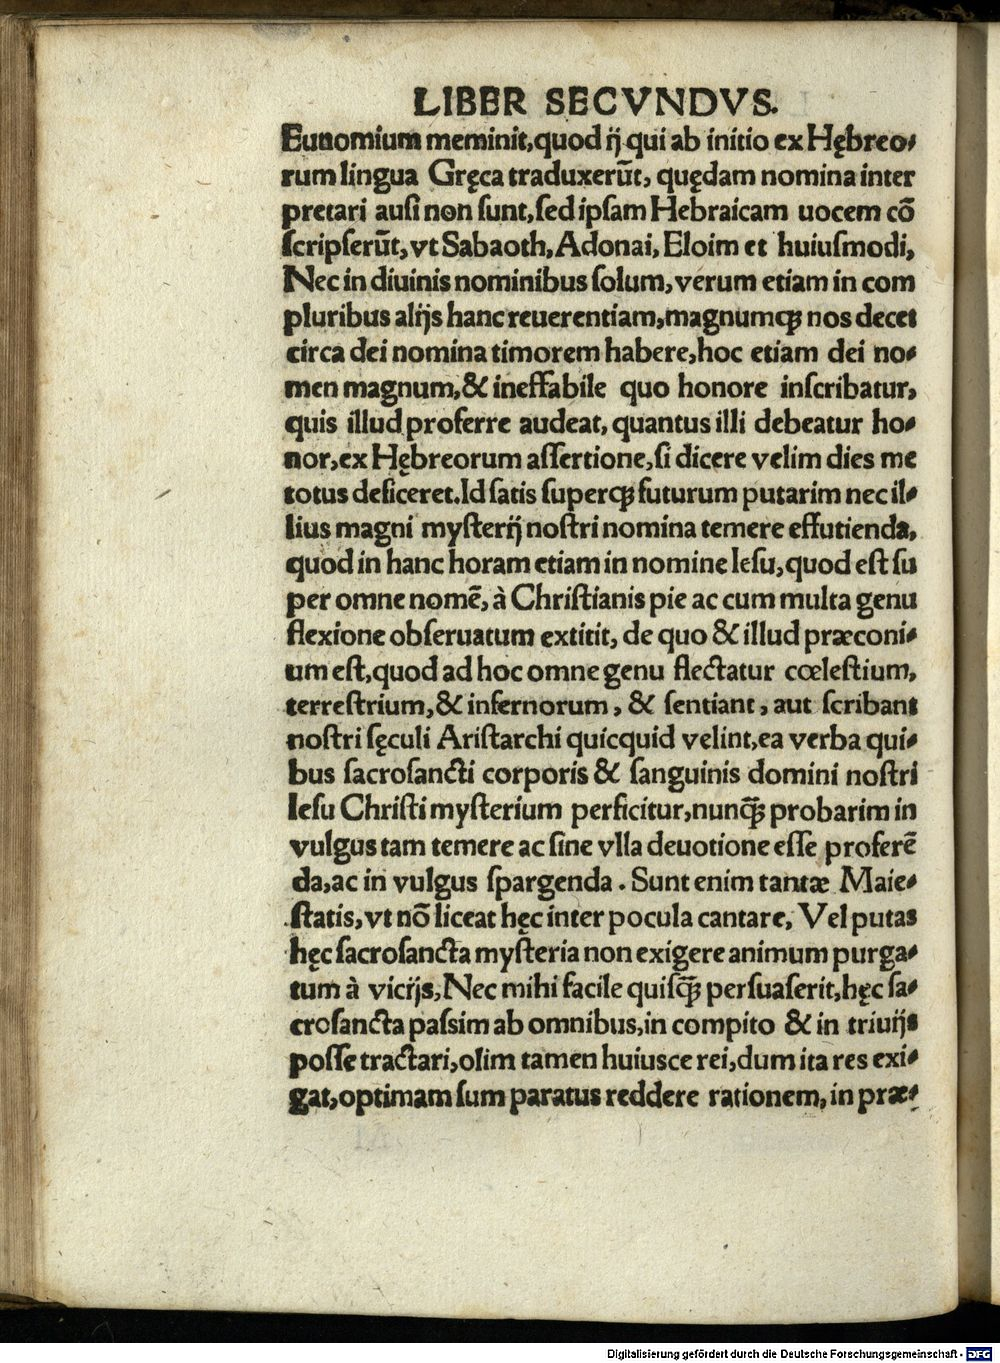 LIBER SECVNDVS.
Eunomium meminit,quod ij qui ab initio ex Hębreo-
rum lingua Gręca traduxerūt, quędam nomina inter
pretari ausi non sunt,sed ipsam Hebraicam uocem cō
scripserūt,vt Sabaoth,Adonai,Eloim et huiusmodi,
Nec in diuinis nominibus solum,verum etiam in com
pluribus alijs hanc reuerentiam,magnumqꝫ nos decet
circa dei nomina timorem habere,hoc etiam dei no-
men magnum,& ineffabile quo honore inscribatur,
quis illud proferre audeat, quantus illi debeatur ho-
nor,ex Hębreorum assertione,si dicere velim dies me
totus deficeret.Id satis superqꝫ futurum putarim nec il-
lius magni mysterij nostri nomina temere effutienda,
quod in hanc horam etiam in nomine Iesu,quod est su
per omne nomē, à Christianis pie ac cum multa genu
flexione obseruatum extitit, de quo & illud præconi-
um est,quod ad hoc omne genu flectatur cœlestium,
terrestrium,& infernorum, & sentiant, aut scribant
nostri sęculi Aristarchi quicquid velint,ea verba qui-
bus sacrosancti corporis & sanguinis domini nostri
Iesu Christi mysterium perficitur,nunq̄ꝫ probarim in
vulgus tam temere ac sine vlla deuotione esse proferē
da,ac in vulgus spargenda. Sunt enim tantæ Maie-
statis,vt nō liceat hęc inter pocula cantare, Vel putas
hęc sacrosancta mysteria non exigere animum purga-
tum à vicijs,Nec mihi facile quisq̄ꝫ persuaserit,hęc sa-
crosancta passim ab omnibus,in compito & in triuijs
posse tractari,olim tamen huiusce rei,dum ita res exi-
gat,optimam sum paratus reddere rationem, in præ-
Digitalisierung gefördert durch die Deutsche Forschungsgemeinschaft - DFG